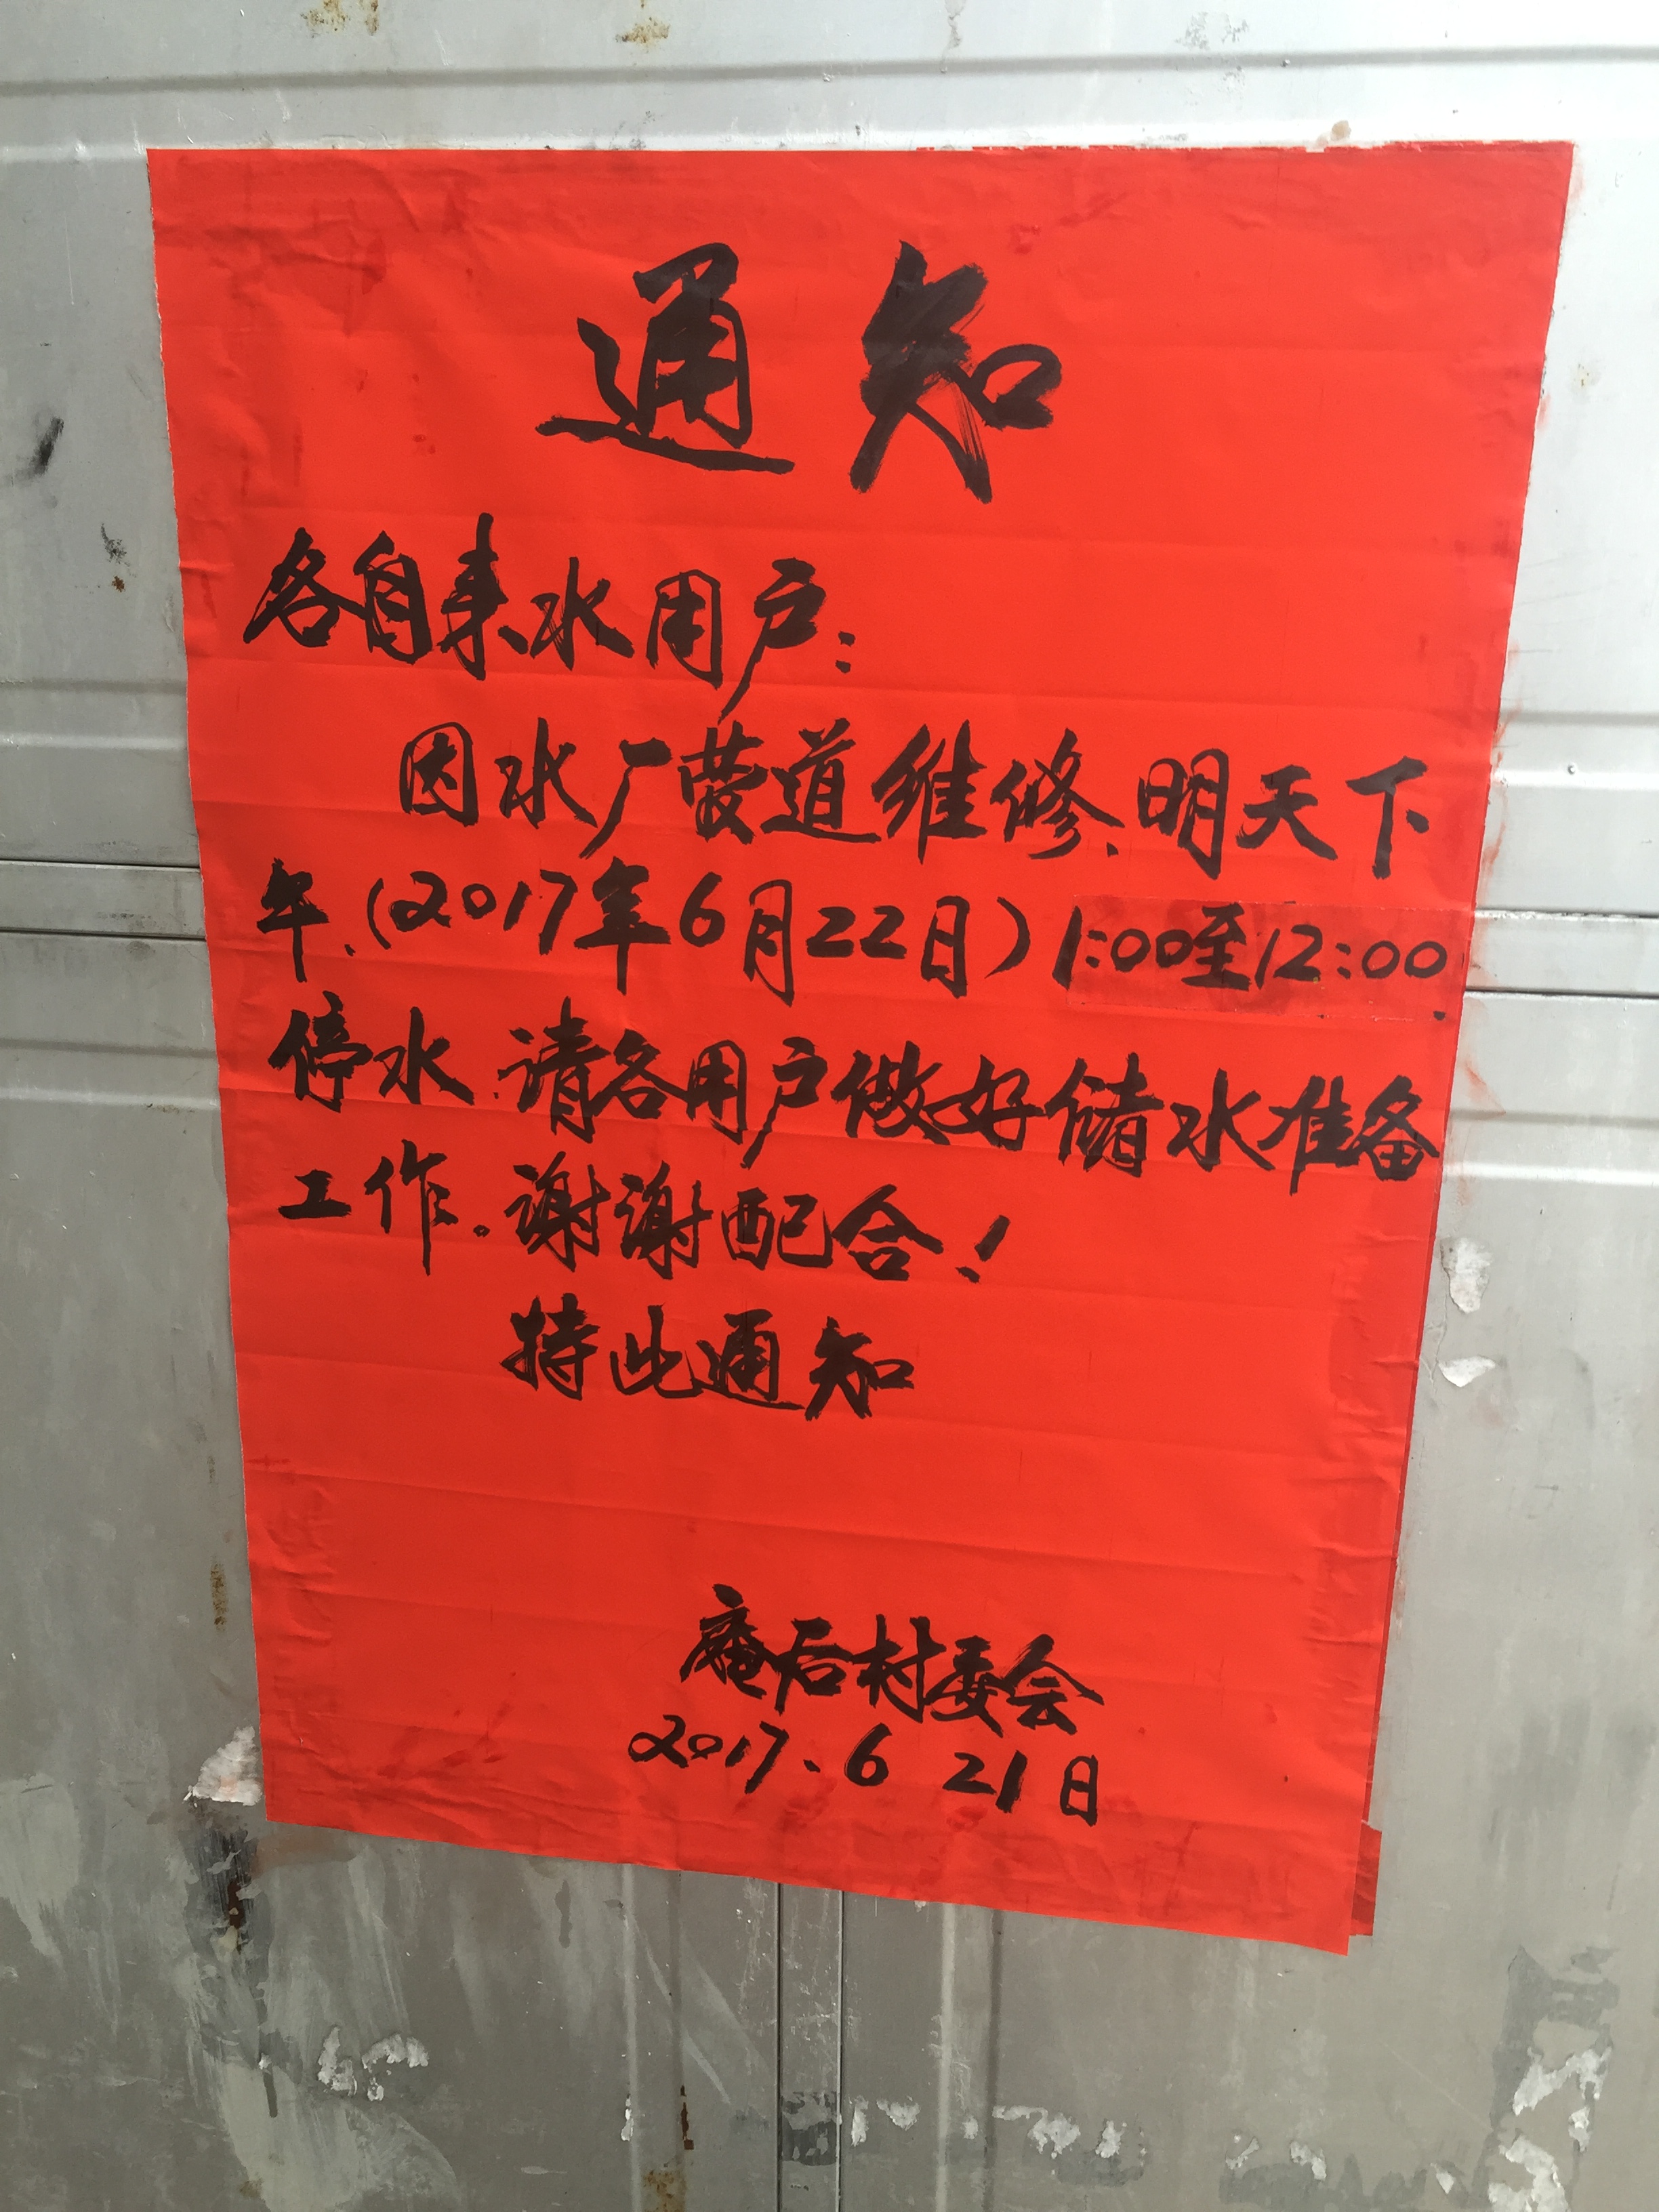 通知
各自来水用户:
因水厂营道维修、明天下
午、(2017年6月22日)1:00至12:00.
停水.请各用户做好储水准备
工作。谢谢配合!
特此通知
庵后村委会
2017.6 21日